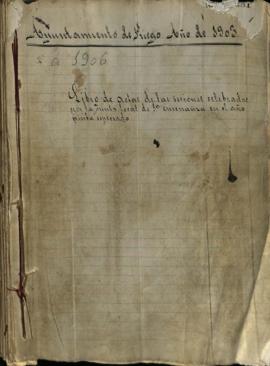 Ayuntamiento de Priego Año de 1905
a 1906
Libro de actas de las sesiones celebradas
por la Junta local de 1ª enseñanza en el año
arriba expresado